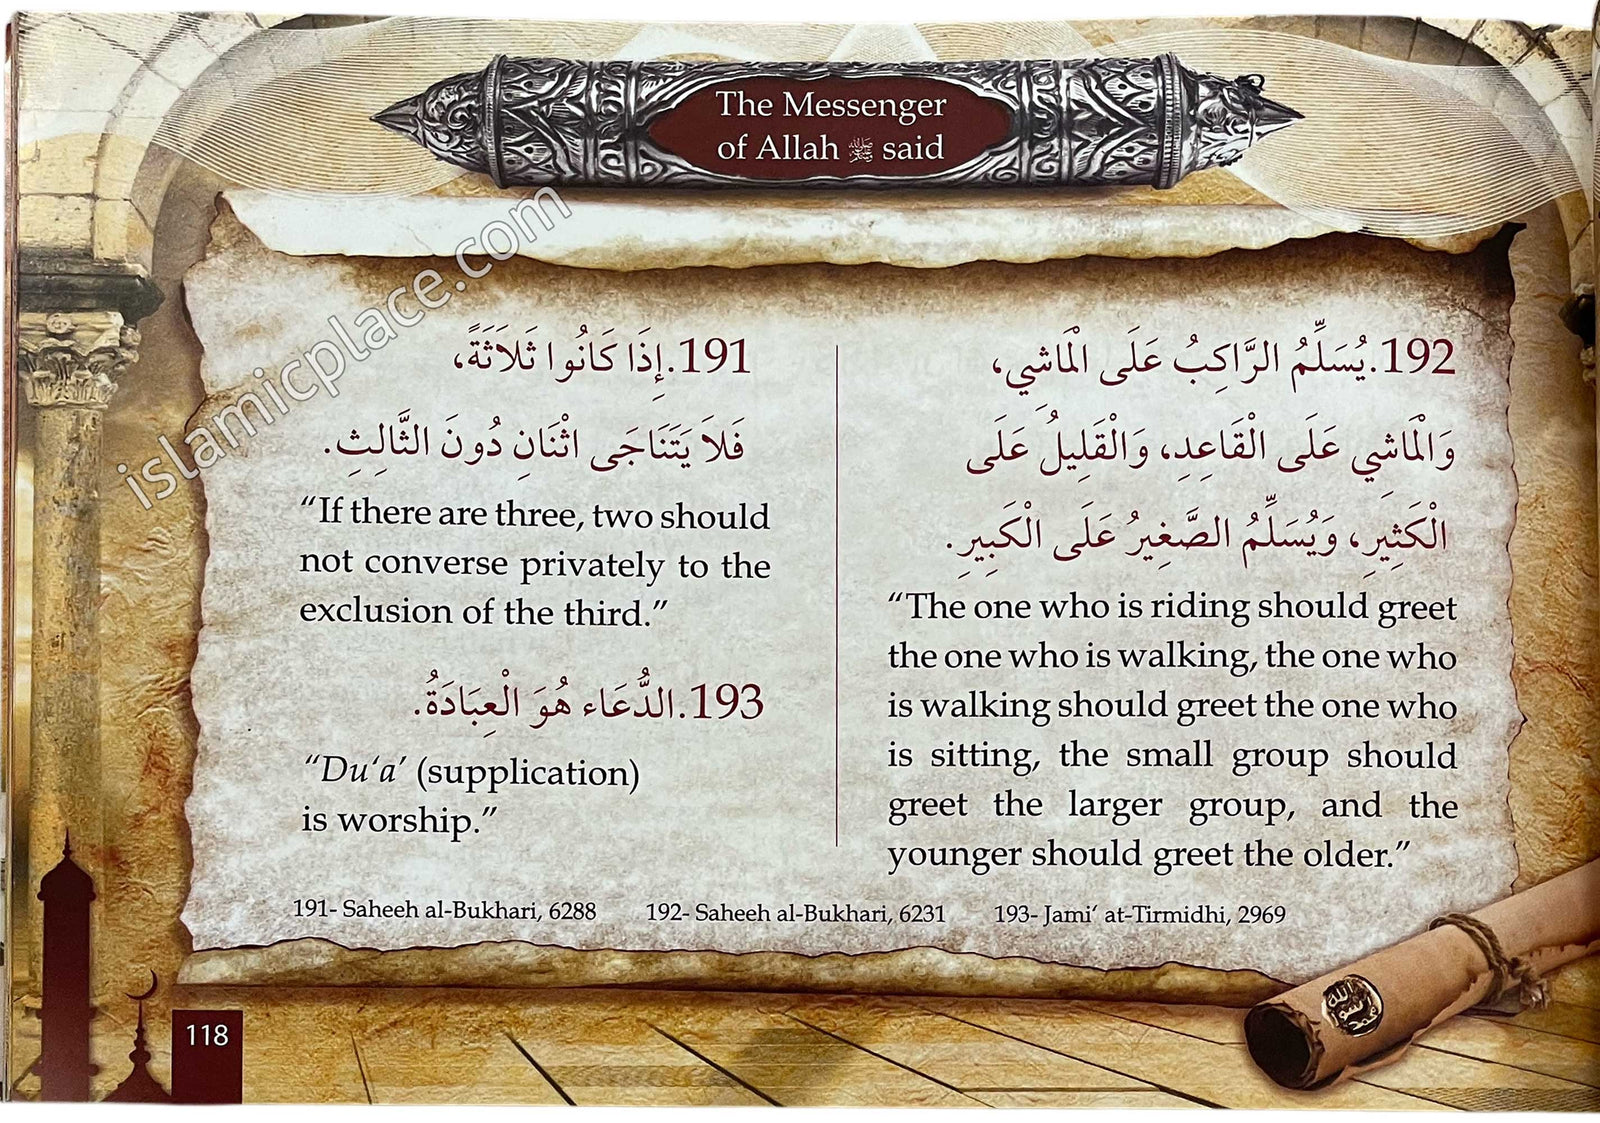 The Messenger
of Allah ﷺ said
191.إِذَا كَانُوا ثَلَاثَةً،
فَلاَ يَتَنَاجَى اثْنَانِ دُونَ الثَّالِثِ.
“If there are three, two should
not converse privately to the
exclusion of the third.”
193.الدُّعَاء هُوَ الْعِبَادَةُ.
“Du‘a’ (supplication)
is worship.”
192.يُسَلِّمُ الرَّاكِبُ عَلَى الْمَاشِي،
وَالْمَاشِي عَلَى الْقَاعِدِ، وَالْقَلِيلُ عَلَى
الْكَثِيرِ، وَيُسَلِّمُ الصَّغِيرُ عَلَى الْكَبِيرِ.
“The one who is riding should greet
the one who is walking, the one who
is walking should greet the one who
is sitting, the small group should
greet the larger group, and the
younger should greet the older.”
191- Saheeh al-Bukhari, 6288 192- Saheeh al-Bukhari, 6231 193- Jami‘ at-Tirmidhi, 2969
118
الله
رسول
محمد
islamicplace.com